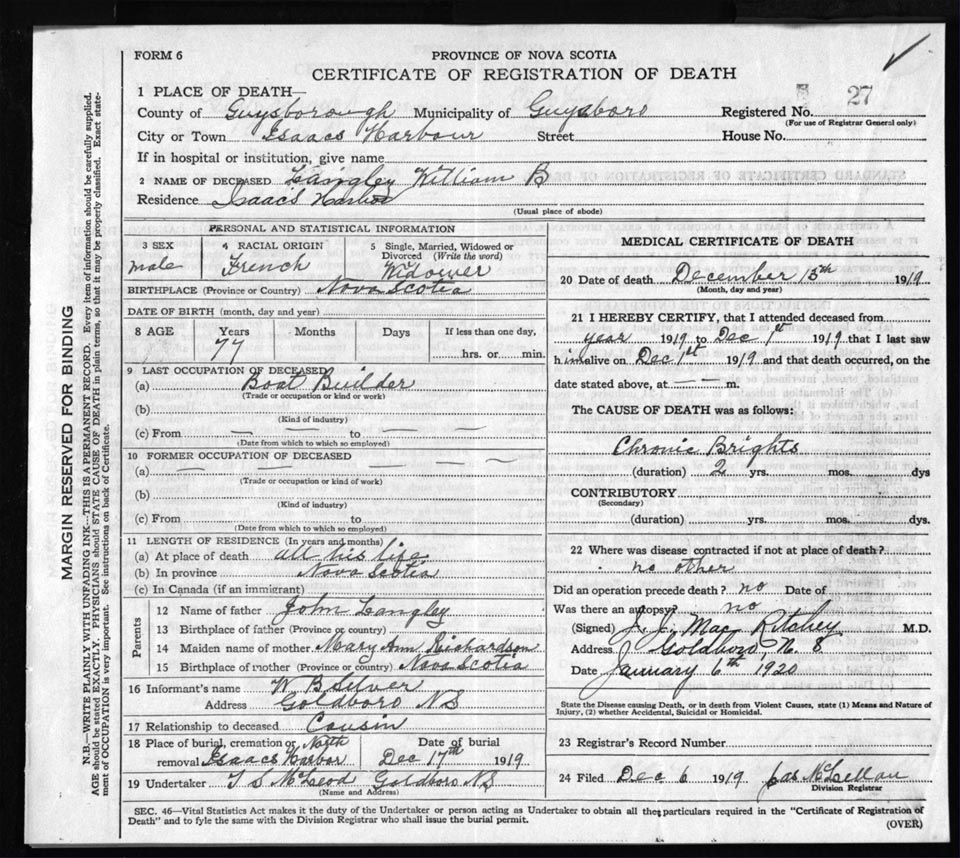 FORM 6
PROVINCE OF NOVA SCOTIA
CERTIFICATE OF REGISTRATION OF DEATH
1 PLACE OF DEATH—
County of Guysborough Municipality of Guysboro Registered No. 27
(For use of Registrar General only)
City or Town Isaacs Harbour Street House No.
If in hospital or institution, give name
2 NAME OF DECEASED Langley William B
Residence Isaac's Harbor
(Usual place of abode)
PERSONAL AND STATISTICAL INFORMATION
3 SEX male
4 RACIAL ORIGIN French
5 Single, Married, Widowed or Divorced (Write the word) Widower
BIRTHPLACE (Province or Country) Nova Scotia
DATE OF BIRTH (month, day and year)
8 AGE Years Months Days If less than one day,
77 hrs. or min.
9 LAST OCCUPATION OF DECEASED
(a) Boat Builder
(Trade or occupation or kind or work)
(b)
(Kind of industry)
(c) From — — to — —
(Date from which to which so employed)
10 FORMER OCCUPATION OF DECEASED
(a) — — — — —
(Trade or occupation or kind of work)
(b)
(Kind of industry)
(c) From to
(Date from which to which so employed)
11 LENGTH OF RESIDENCE (In years and months)
(a) At place of death all his life
(b) In province Nova Scotia
(c) In Canada (if an immigrant)
Parents
12 Name of father John Langley
13 Birthplace of father (Province or country)
14 Maiden name of mother Mary Ann Richardson
15 Birthplace of mother (Province or country) Nova Scotia
16 Informant's name W B Silver
Address Goldboro NS
17 Relationship to deceased Cousin
18 Place of burial, cremation or North Date of burial
removal Isaacs Harbor Dec 17th 1919
19 Undertaker T S McLeod Goldboro NS
(Name and Address)
MEDICAL CERTIFICATE OF DEATH
20 Date of death December 15th 1919
(Month, day and year)
21 I HEREBY CERTIFY, that I attended deceased from
year 1919 to Dec 1st 1919 that I last saw
him alive on Dec 1st 1919 and that death occurred, on the
date stated above, at — — m.
The CAUSE OF DEATH was as follows:
Chronic Brights
(duration) 2 yrs. mos. dys
CONTRIBUTORY
(Secondary)
(duration) yrs. mos. dys.
22 Where was disease contracted if not at place of death?
no other
Did an operation precede death? no Date of
Was there an autopsy? no
(Signed) J. J. Mac Ritchey M.D.
Address Goldboro, N. S
Date January 6th 1920
State the Disease causing Death, or in death from Violent Causes, state (1) Means and Nature of
Injury, (2) whether Accidental, Suicidal or Homicidal.
23 Registrar's Record Number
24 Filed Dec 6 1919 Jas McLellan
Division Registrar
SEC. 46—Vital Statistics Act makes it the duty of the Undertaker or person acting as Undertaker to obtain all the particulars required in the "Certificate of Registration of
Death" and to fyle the same with the Division Registrar who shall issue the burial permit.
(OVER)
MARGIN RESERVED FOR BINDING
N.B.—WRITE PLAINLY WITH UNFADING INK—THIS IS A PERMANENT RECORD. Every item of information should be carefully supplied.
AGE should be stated EXACTLY. PHYSICIANS should STATE CAUSE OF DEATH in plain terms, so that it may be properly classified. Exact state-
ment of OCCUPATION is very important. See instructions on back of Certificate.